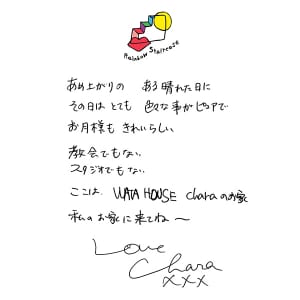 Rainbow Staircase
あめ上がりの ある晴れた日に
その日は とても 色々な事がピュアで
お月様も きれいらしい
教会でもない
スタジオでもない
ここは、WATA HOUSE charaのお家
私のお家に来てね〜
Love
Chara
xxx